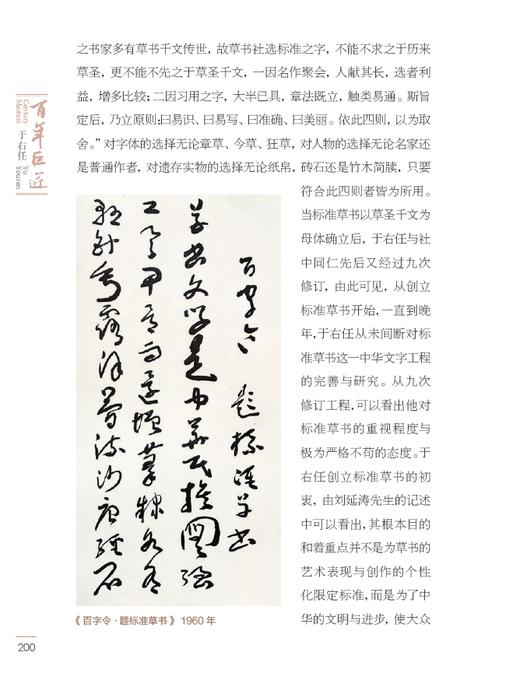 之书家多有草书千文传世，故草书社选标准之字，不能不求之于历来
草圣，更不能不先之于草圣千文，一因名作聚会，人献其长，选者利
益，增多比较；二因习用之字，大半已具，章法既立，触类易通。斯旨
定后，乃立原则：曰易识、曰易写、曰准确、曰美丽。依此四则，以为取
舍。”对字体的选择无论章草、今草、狂草，对人物的选择无论名家还
是普通作者，对遗存实物的选择无论纸帛，砖石还是竹木简牍，只要
符合此四则者皆为所用。
当标准草书以草圣千文为
母体确立后，于右任与社
中同仁先后又经过九次
修订，由此可见，从创立
标准草书开始，一直到晚
年，于右任从未间断对标
准草书这一中华文字工程
的完善与研究。从九次
修订工程，可以看出他对
标准草书的重视程度与
极为严格不苟的态度。于
右任创立标准草书的初
衷，由刘延涛先生的记述
中可以看出，其根本目的
和着重点并不是为草书的
艺术表现与创作的个性
化限定标准，而是为了中
华的文明与进步，使大众
百字令 题标准草书
草书文学是中华民族图强
工具甲骨而还增篆隶各有
悬针垂露汉简流沙唐经石
《百字令·题标准草书》1960 年
百年巨匠
Century
Masters
于右任
Yu
Youren
200